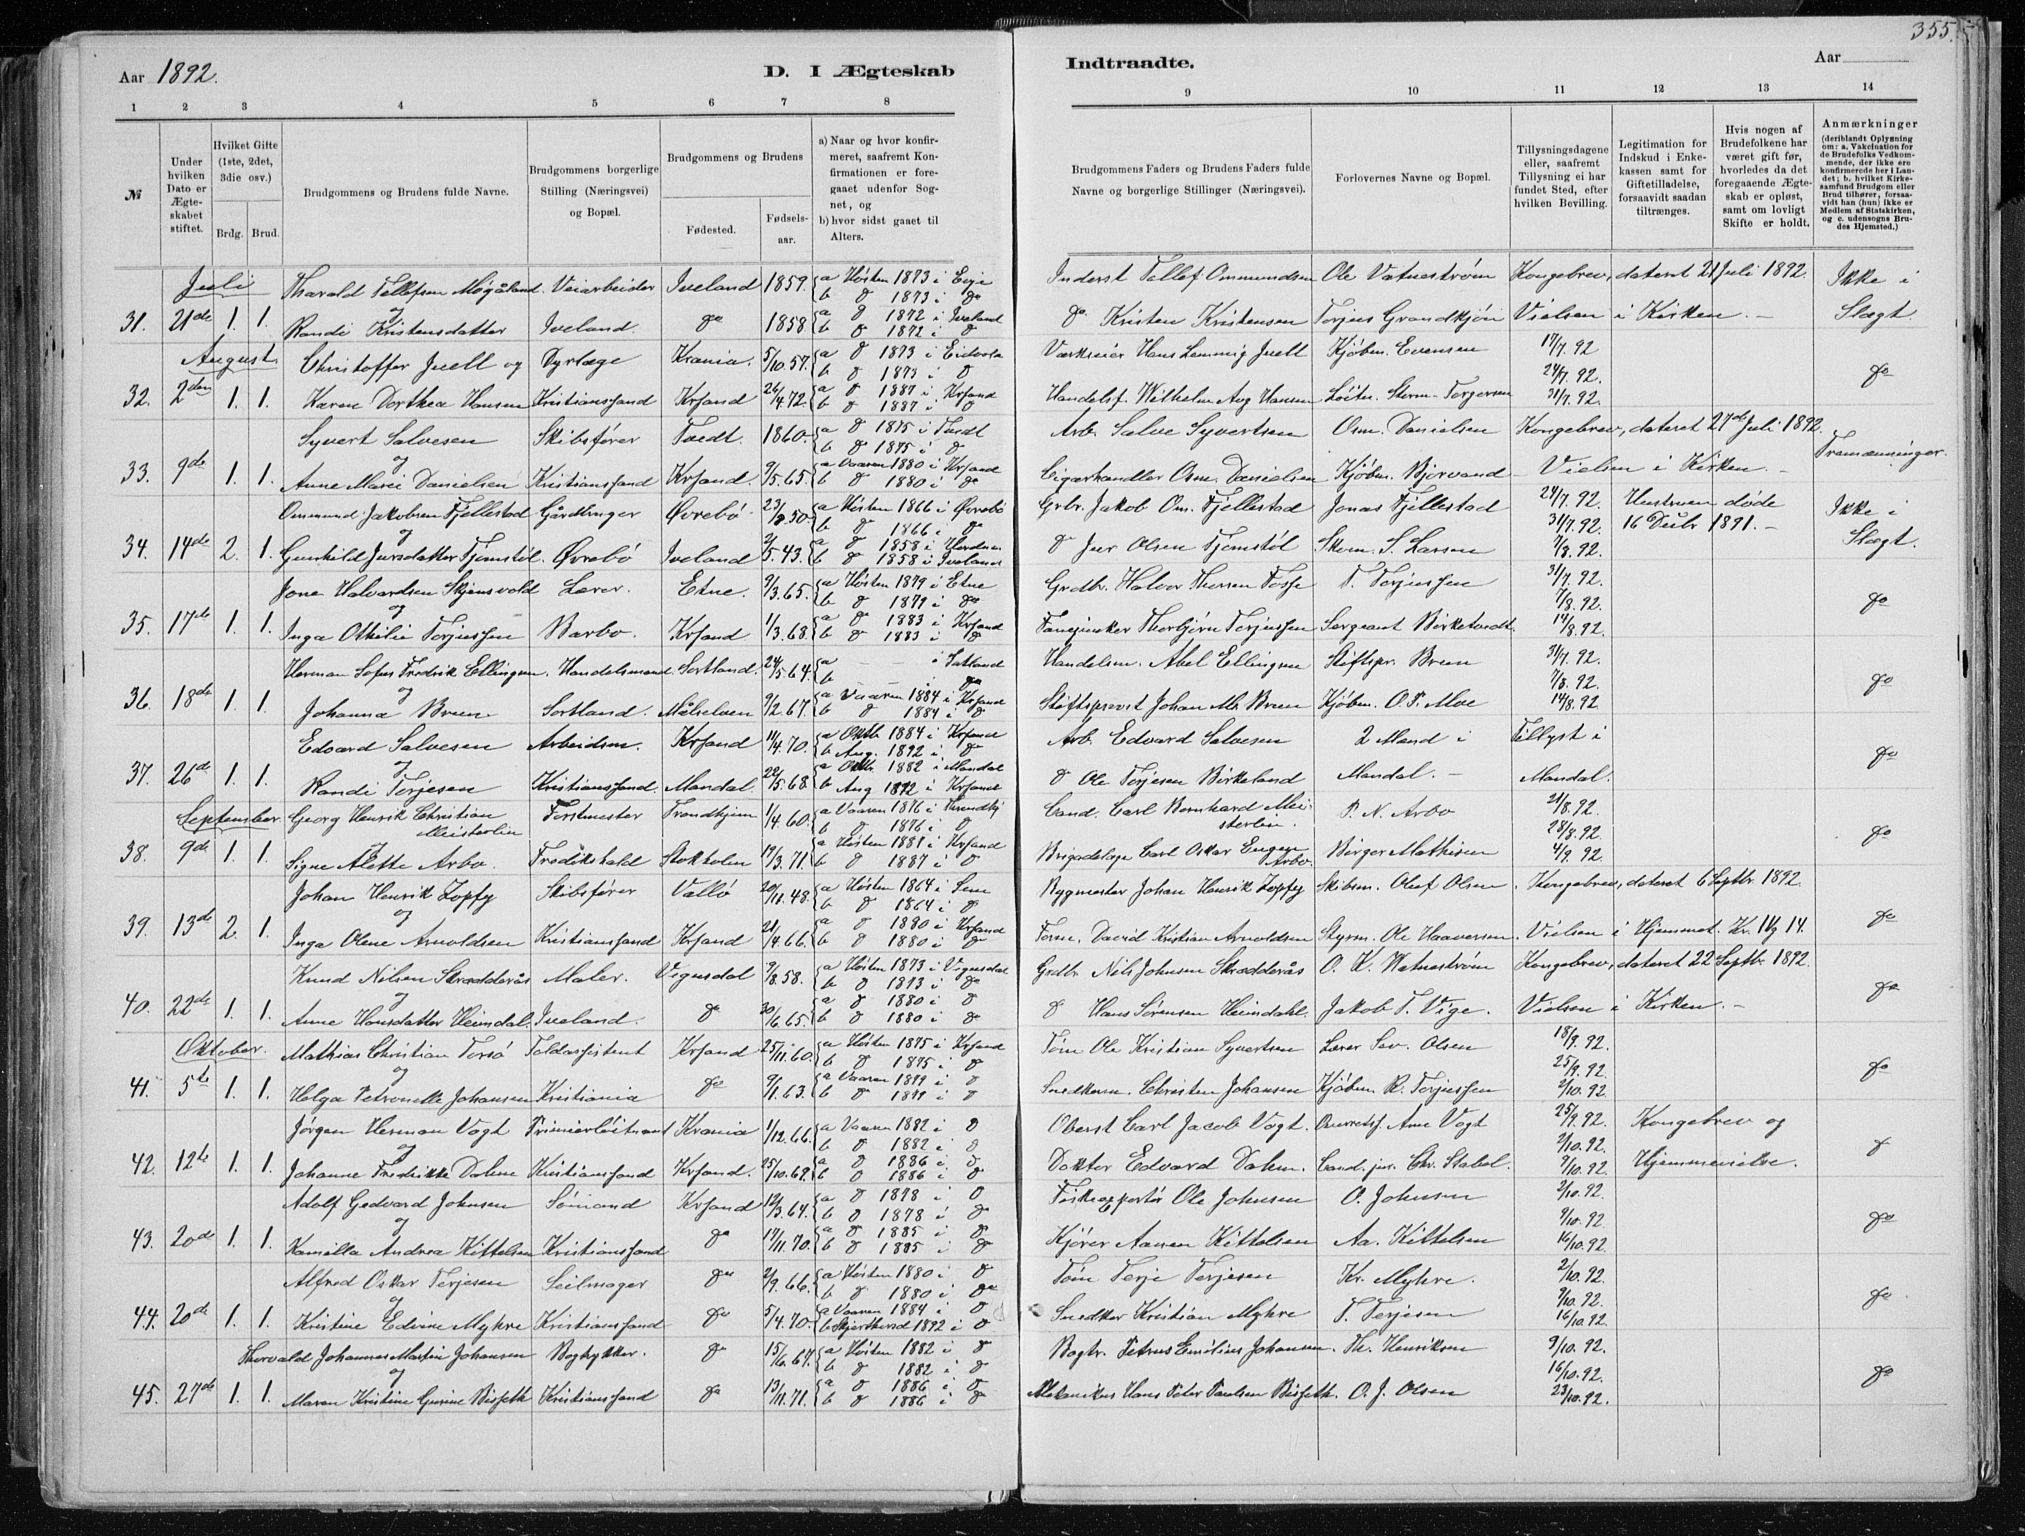 355.
Aar 1892.
D. I Ægteskab Indtraadte.
Aar
1 2 3 4 5 6 7 8 9 10 11 12 13 14
№
Under hvilken Dato er Ægteskabet stiftet.
Hvilket Gifte (1ste, 2det, 3die osv.)
Brdg. Brud.
Brudgommens og Brudens fulde Navne.
Brudgommens borgerlige Stilling (Næringsvei) og Bopæl.
Brudgommens og Brudens
Fødested. Fødselsaar.
a) Naar og hvor konfirmeret, saafremt Konfirmationen er foregaaet udenfor Sognet, og
b) hvor sidst gaaet til Alters.
Brudgommens Faders og Brudens Faders fulde Navne og borgerlige Stillinger (Næringsvei).
Forlovernes Navne og Bopæl.
Tillysningsdagene eller, saafremt Tillysning ei har fundet Sted, efter hvilken Bevilling.
Legitimation for Indskud i Enkekassen samt for Giftetilladelse, forsaavidt saadan tiltrænges.
Hvis nogen af Brudefolkene har været gift før, hvorledes da det foregaaende Ægteskab er opløst, samt om lovligt Skifte er holdt.
Anmærkninger (deriblandt Oplysning om: a. Vakcination for de Brudefolks Vedkommende, der ikke ere konfirmerede her i Landet; b. hvilket Kirkesamfund Brudgom eller Brud tilhører, forsaavidt han (hun) ikke er Medlem af Statskirken, og c. udensogns Brudes Hjemsted.)
Juli Harald Tellefsen Veiarbeider Iveland 1859. a Høsten 1873 i Eije Inderst Tellef Ommundsen Ole Vatnestrøm Kongebrev, dateret 21 Juli 1892. Ikke i
og b do 1873 i do
31. 21de 1. 1. Randi Kristensdatter Iveland. do 1858 a do 1872 i Iveland do. Kristen Kristensen Torjus Grandkjøn Vielsen i Kirken. Slægt.
b do 1872 i do
August. Christoffer Juell og Dyrlæge Krania. 5/10.57. a do 1873 i Eidvold Værkseier Hans Lemmig Juell Kjøbm. Evensen 17/7.92
b do 1873 i do 24/7.92. do
32. 2den 1. 1. Karen Dorthea Hansen Kristianssand Krsand 26/4.72. a do 1887 i Krsand Handelsf. Wilhelm Aug Hansen Løitn. Storm-Torgersen 31/7.92.
b do 1887 i do
Syvert Salvesen Skibsfører Tvedt. 1860. a do 1875 i Tvedt Arb. Salve Syvertsen Osm. Danielsen Kongebrev, dateret 27de Juli 1892.
og b do 1875 i do
33. 9de 1. 1. Anne Marie Danielsen Kristianssand Krsand 9/5.65. a Vaaren 1880 i Krsand Cigarhandler Osm. Danielsen Kjøbm. Bjorvand Vielsen i Kirken. Fremmeninger.
b do 1880 i do
Ommund Jakobsen Fjellestad Gårdbruger Øvrebø 23/2.50. a Høsten 1866 i Øvrebø Grbr. Jakob Om. Fjellestad Jonas Fjellestad 24/7.92. Hustruen døde Ikke i
og b do 1866 i do 31/7.92. 16 Decbr 1891.
34. 14de 2. 1. Gunhild Jversdatter Fjømstøl. Øvrebø Iveland 2/5.43. a do 1858 i do Iver Olsen Fjømstøl Skom. S. Larsen 7/8.92. Slægt.
b do 1858 i Iveland
Jone Halvardsen Skjensvold Lærer. Etne. 9/3.65. a Høsten 1879 i Etne Grdbr. Halvor Thorsen Fosse T. Torjussen 31/7.92.
og b do 1879 i do 7/8.92. do
35. 17de 1. 1. Inga Othilie Torjussen Barbo. Krsand 1/3.68. a do 1883 i Krsand Fanejunker Thorbjørn Torjussen Sergeant Birketvedt. 14/8.92.
b do 1883 i do
Herman Sofus Fredrik Ellingsen. Handelsmand Sortland. 24/5.64. a i Sortland Handelsm. Abel Ellingsen Stiftspr. Bruun 31/7.92.
og b do 7/8.92. do
36. 18de 1. 1. Johanna Bruun Sortland. Målselven 9/2.67. a Vaaren 1884 i Krsand Stiftsprovst Johan M. Bruun Kjøbm. O. P. Moe 14/8.92
b do 1884 i do
Edvard Salvesen Arbeidsm. Krsand 11/4.70. a Oktb. 1884 i Krsand Arb. Edvard Salvesen 2 Mænd i Tillyst i
og b Aug. 1892 i do do
37. 26de 1. 1. Randi Torjesen Kristianssand Mandal. 22/5.68 a Oktb. 1882 i Mandal do Ole Torjesen Birkeland Mandal. Mandal.
b Aug 1892 i Krsand
September. Georg Henrik Christian Meisterlin Forstmester Trondhjem 1/4.60. a Vaaren 1876 i Trondhj Cand. Carl Bernhard Meisterlin. P. N. Arbo 21/8.92.
og b do 1876 i do 28/8.92. do
38. 9de 1. 1. Signe Alette Arbo. Fredrikshald Stokholm 17/3.71. a Høsten 1887 i Krsand Brigadelæge Carl Oskar Eugen Arbo. Birger Mathisen 4/9.92.
b do 1887 i do
Johan Henrik Zopfy Skibsfører Vallø 20/11.48. a Høsten 1864 i Sem Bygmester Johan Henrik Zopfy Skibsm. Olaf Olsen. Kongebrev, dateret 6 Septbr 1892.
og b do 1864 i do
39. 13de 2. 1. Inga Olene Arnoldsen Kristianssand Krsand 21/4.66. a do 1880 i Krsand Tømm. David Kristian Arnoldsen Styrm. Ole Haaversen. Vielsen i Hjemmet. do
b do 1880 i do
Knud Nilsen Skrædderås Maler. Vigusdal 9/8.58. a Høsten 1873 i Vigusdal Grdbr Nils Johnsen Skrædderås O. K. Watnestrøm Kongebrev, dateret 22 Septbr. 1892.
og b do 1873 i do
40. 22de 1. 1. Anne Hansdatter Heimdal. Iveland. do 20/6.65. a do 1880 i do do Hans Sørensen Heimdahl. Jakob T. Vige. Vielsen i Kirken. do
b do 1880 i do
Oktober. Mathias Christian Torsø Toldassistent Krsand 25/11.60. a Høsten 1875 i Krsand Tøm Ole Kristian Syvertsen Lærer Sev. Olsen 18/9.92.
og b do 1875 i do 25/9.92. do
41. 5te 1. 1. Helga Petronelle Johansen Kristiania do 9/1.63. a Vaaren 1879 i do Snedkerm. Christen Johansen Kjøbm. R. Torjussen 2/10.92.
b do 1879 i do
Jørgen Herman Vogt Premierløitnant Krania 1/12.66. a Vaaren 1882 i do Oberst Carl Jacob Vogt. Overretsf. Arne Vogt 25/9.92. Kongebrev og
og b do 1882 i do 2/10.92. do
42. 12te 1. 1. Johanne Fredrikke Dahm Kristianssand Krsand. 25/10.68. a do 1886 i do Doktor Edvard Dahm. Cand. jur. Chr. Stabel. 9/10.92. Hjemmevielse.
b do 1886 i do
Adolf Gedvard Johnsen Sømand Krsand 12/3.64. a do 1878 i do Fiskexportør Ole Johnsen O. Johnsen 2/10.92.
og b do 1878 i do 9/10.92 do
43. 20de 1. 1. Kamilla Andrea Kittelsen Kristianssand do 17/11.70. a do 1885 i do Kjører Aanen Kittelsen Aa. Kittelsen 16/10.92.
b do 1885 i do
Alfred Oskar Terjesen Seilmager do 2/9.66. a Høsten 1880 i do Tøm Terje Terjesen Kr. Myhre. 2/10.92.
og b do 1880 i do 9/10.92. do
44. 20de 1. 1. Kristine Edvine Myhre Kristianssand do 5/4.70. a Vaaren 1884 i do Snedker Kristian Myhre T. Terjesen 16/10.92
b Skjærthorsd 1892 i do
Thorvald Johannes Martin Johansen Bogtrykker. do 15/6.67. a Høsten 1882 i do Bogtr. Petrus Emilius Johansen. Th. Henriksen 9/10.92.
og b do 1882 i do 16/10.92. do
45. 27de 1. 1. Maren Kristine Gurine Bisseth Kristianssand do 13/11.71. a do 1886 i do Mekanikus Hans Peter Paulsen Bisseth. O. J. Olsen 23/10.92.
b do 1886 i do